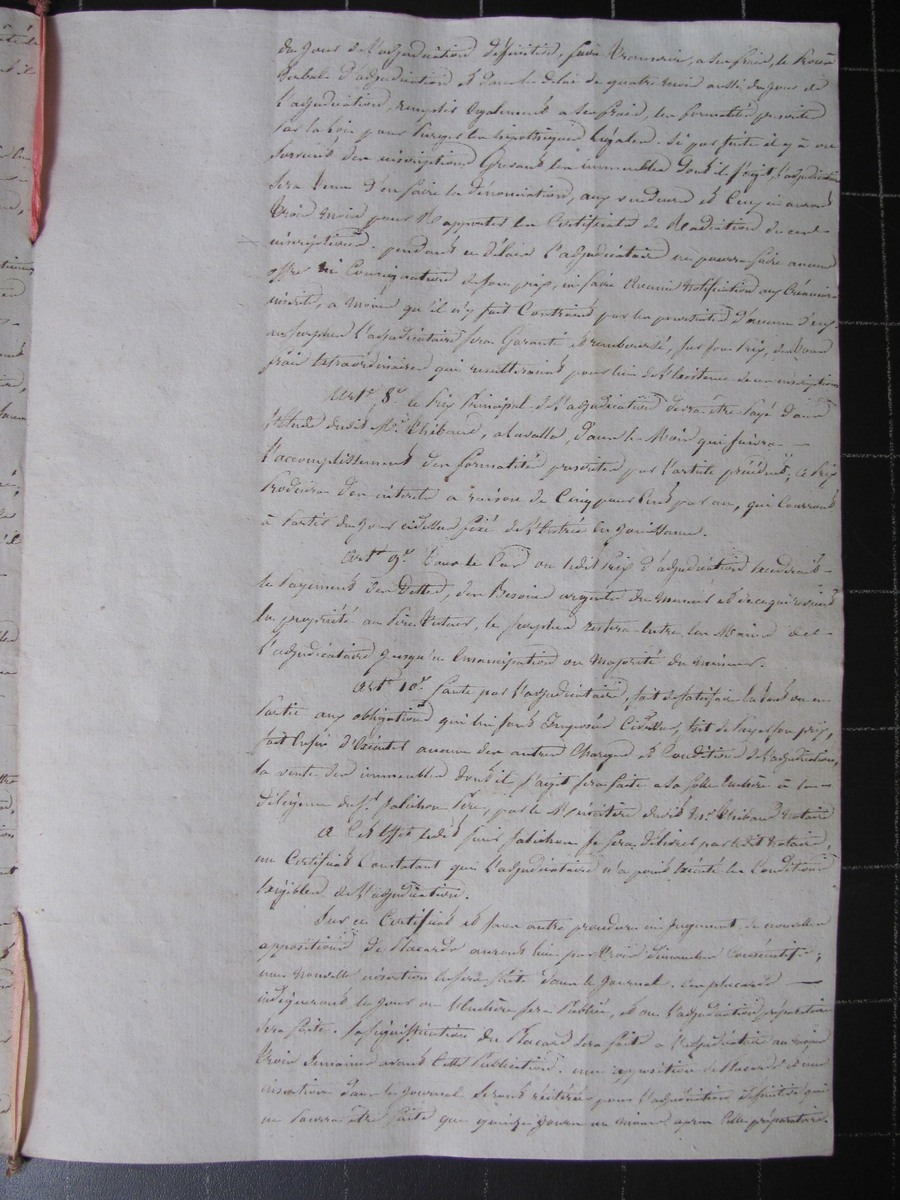 du jour de l'adjudication définitive, faire transcrire, a ses frais, le procès
verbal d'adjudication et dans le délai de quatre mois aussi du jour de
l'adjudication, remplir également a ses frais, les formalités prescrites
par la loi pour purger les hipothèques légales. Si par suite il y a ou
survient des inscriptions grevant les immeubles dont il s'agit, l'adjudicataire
sera tenu d'en faire la dénonciation, aux vendeurs et ceux ci auront
trois mois pour rapporter les certificats de Radiation de cest
inscriptions. pendant ce délai l'adjudicataire ne pourra faire aucune
offre ni consignation de son prix, ni faire aucune notification aux Créanciers
inscrits, a moins qu'il n'y soit Contraint par les poursuites d'aucun d'eux
au surplus l'adjudicataire sera Garanti et remboursé, sur son prix, de tous
frais extraordinaires qui resulteraient pour lui de l'existence de ces inscriptions
Art. 8. Le Prix Principal de l'adjudication devra être Payé dans
l'Etude dudit Me Thibaud, a Lavalle, dans le Mois qui suivra
l'accomplissement des formalités prescrites par l'article précédent, ce Prix
Produira des intérets a raison de Cinq pour Cent par an, qui Courront
à Partir du jour cidessus fixé de l'Entrée en jouissance.
Art. 9. Dans le Cas ou ledit Prix d'adjudication excederait
le Payement des Dettes, des Besoins urgents du mineur et de ce qui revient
en propriété au Père, le surplus restera entre les Mains de
l'adjudicataire jusqu'a Emancipation ou Majorité du mineur.
Art. 10. Faute par l'adjudicataire, soit de satisfaire en tout ou en
Partie aux obligations qui lui sont Imposées Cidessus, soit de Payer son prix,
soit enfin d'Exécuter aucune des autres Charges et Conditions de l'adjudication,
la vente des immeubles dont il s'agit sera faite a sa folle Enchère à la
diligence du Sr Salichon Père, par le Ministère dudit Me Thibaud Notaire
A Cet Effet ledit Sieur Salichon se fera délivrer par ledit Notaire,
un Certificat Constatant que l'adjudicataire n'a point Exécuté les Conditions
Exigibles de l'adjudication.
Sur ce Certificat et sans autre procédure ni jugement de nouvelles
appositions de Placards auront lieu par trois dimanches Consécutifs;
une nouvelle insertion en sera faite dans le journal. Les placards
indiqueront le jour ou l'Enchère sera Publiée, et ou l'adjudication préparatoire
sera faite. La signification du Placard sera faite a l'adjudicataire au moins
trois semaines avant Cette Publication. une apposition de Placards et une
insertion dans le journal seront réitérées pour l'adjudication définitive qui
ne pourra être faite que quinze jours au moins après Celle préparatoire.